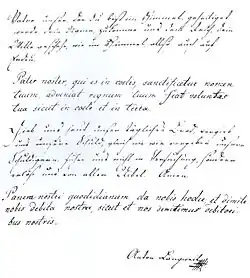 Vater unser der du bist im Himmel, geheiliget
werde dein Namen, zukomme uns dein Reich, dein
Wille geschehe, wie im Himmel, also auch auf
Erden.
Pater noster, qui es in coelis, sanctificetur nomen
tuum, adveniat regnum tuum fiat voluntas
tua sicut in coelo et in terra.
unser tägliches Brod, vergieb
uns unsere Schuld, gleich wie wir vergeben unsern
Schuldigern, führe uns nicht in Versuchung, sondern
erlöse uns von allem Uebel Amen.
Panem nostri quodidianum da nobis hodie, et dimite
nobis debita nostra, sicut et nos demitimus debitori
bus nostris.
Anton